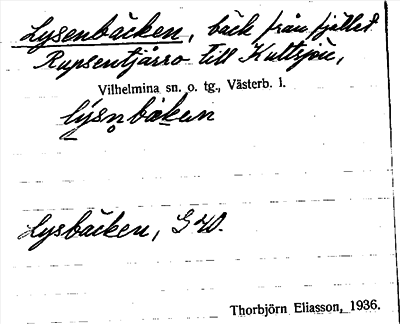 Lysenbäcken, bäck från fjället
Rupsentjårro till Kultsjön,
Vilhelmina sn. o. tg., Västerb. l.
lýsnbäken
Lysbäcken, G 40.
Thorbjörn Eliasson, 1936.